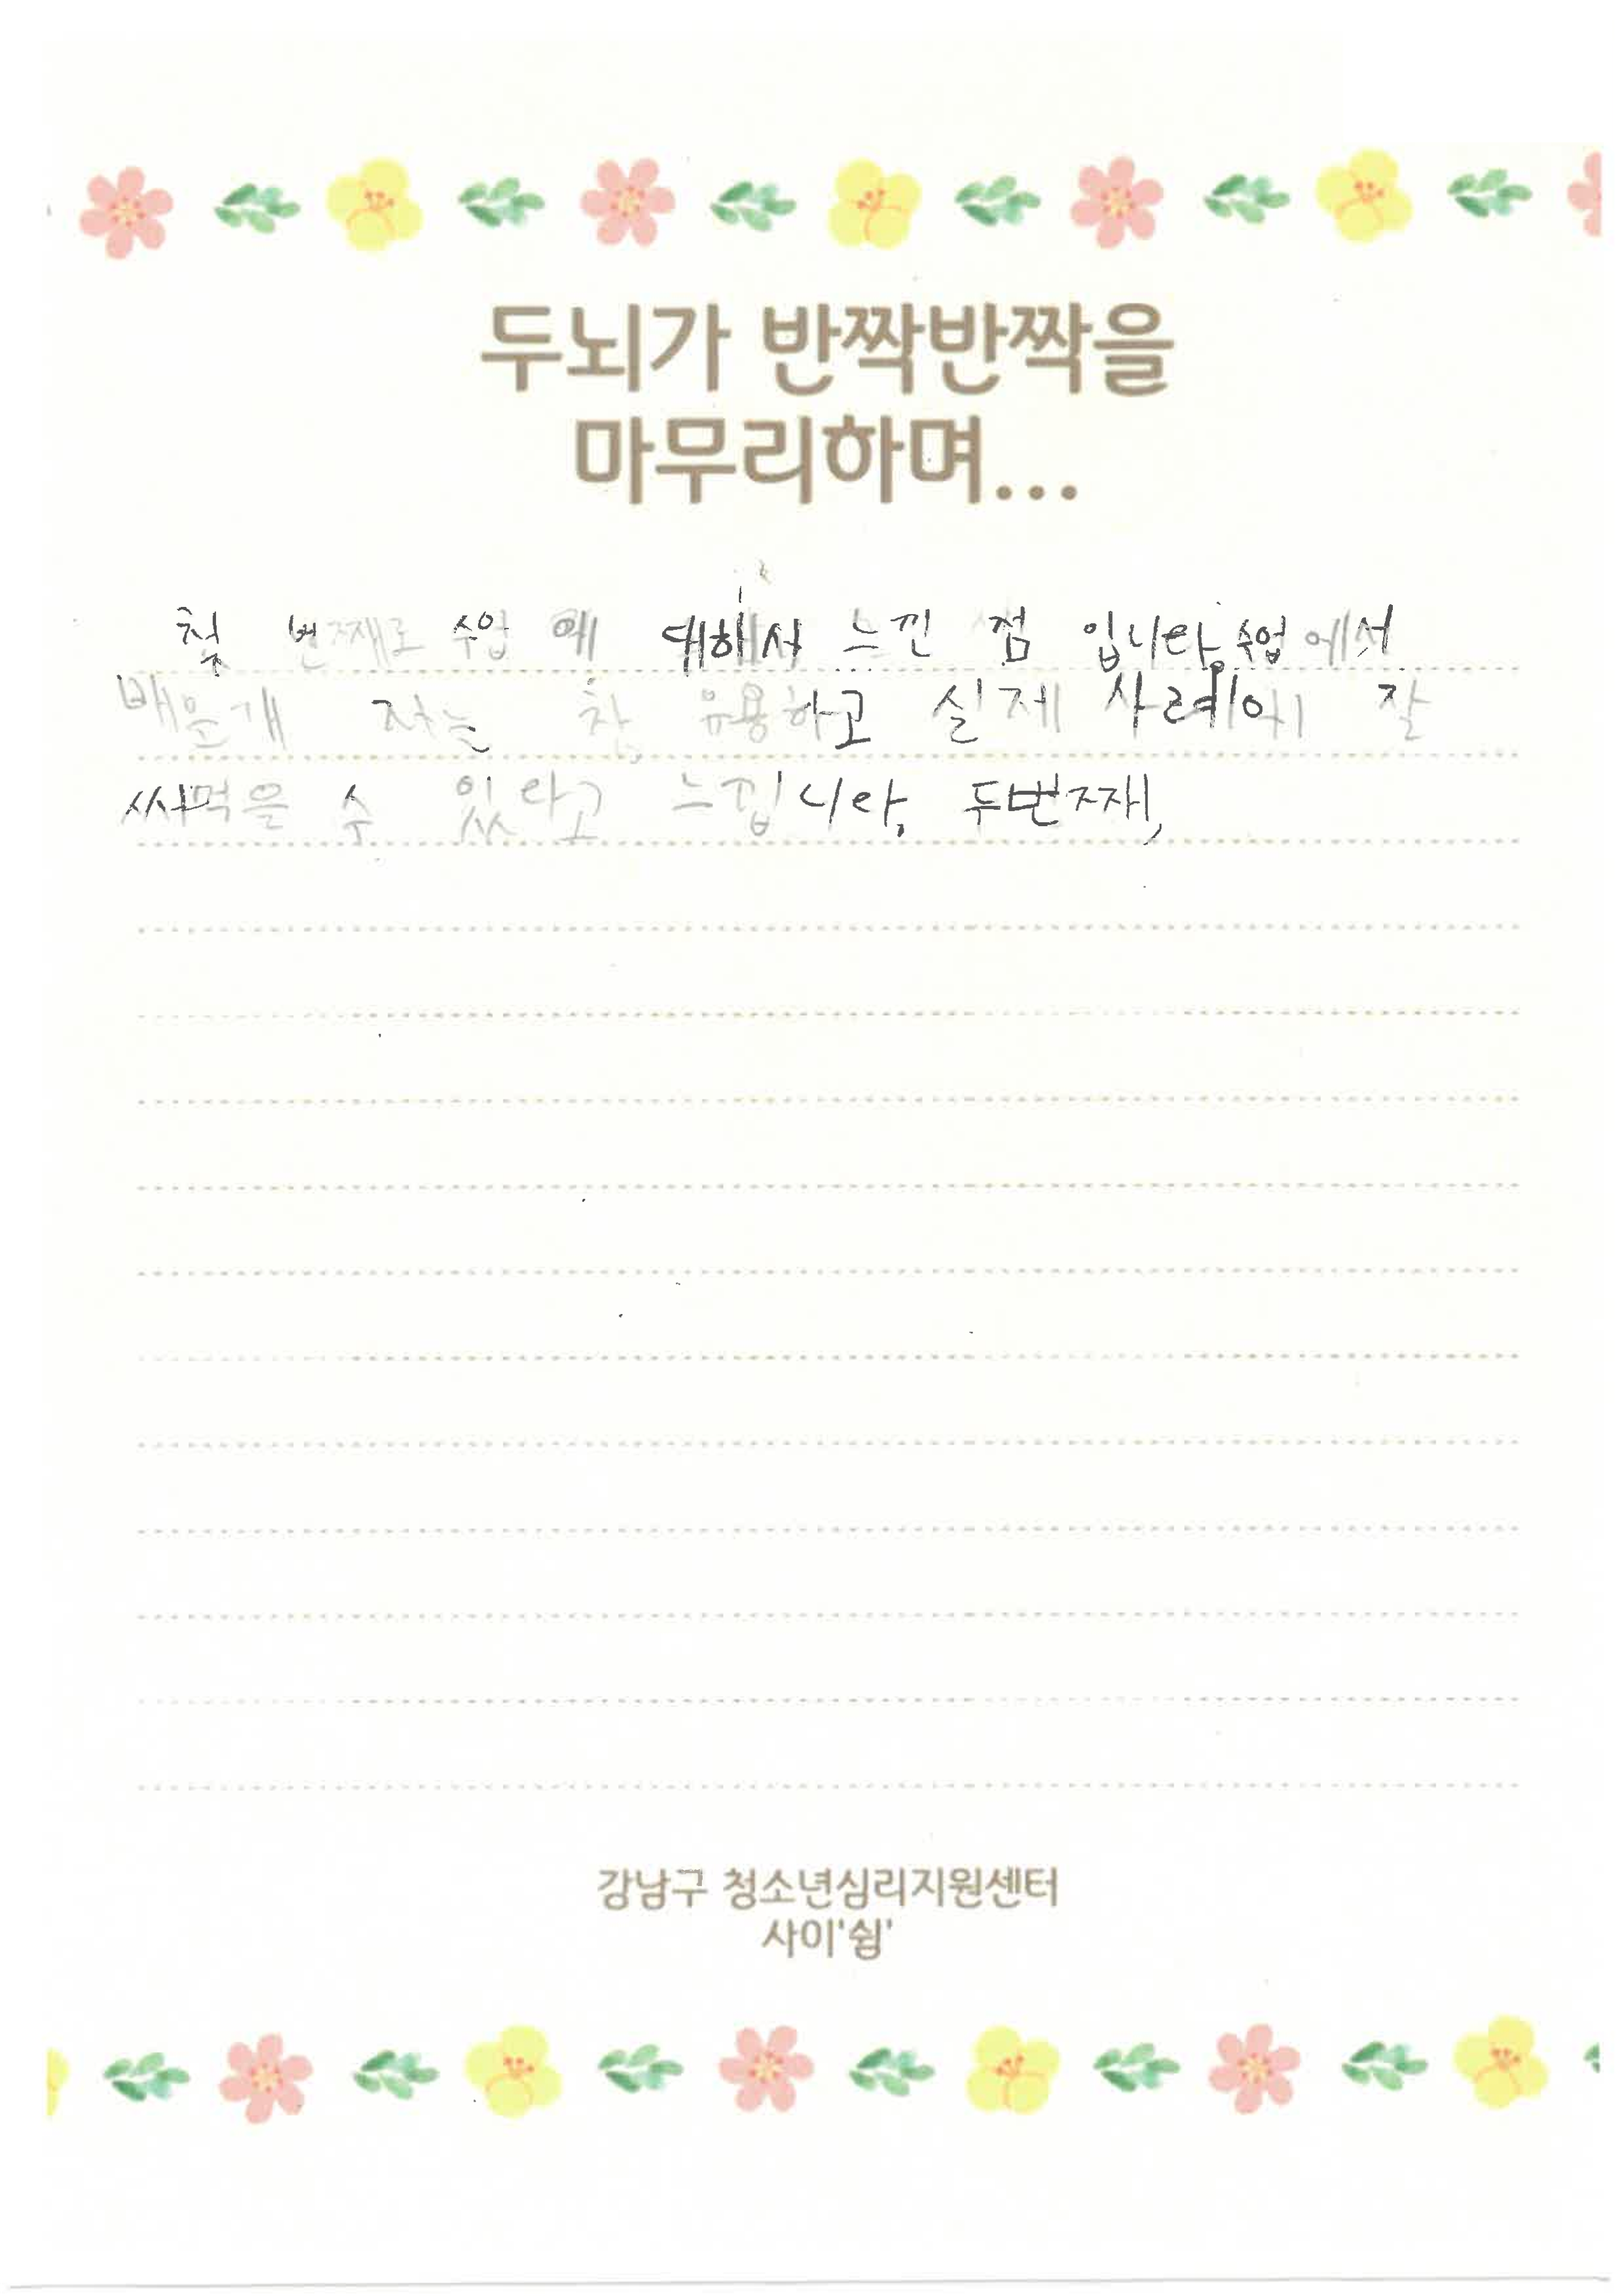 두뇌가 반짝반짝을
마무리하며...
첫 번째로 수업 에 대해서 느낀 점 입니다. 수업에서
배운게 저는 참 유용하고 실제 사례에 잘
써먹을 수 있다고 느낍니다. 두번째,
강남구 청소년심리지원센터
사이'쉼'